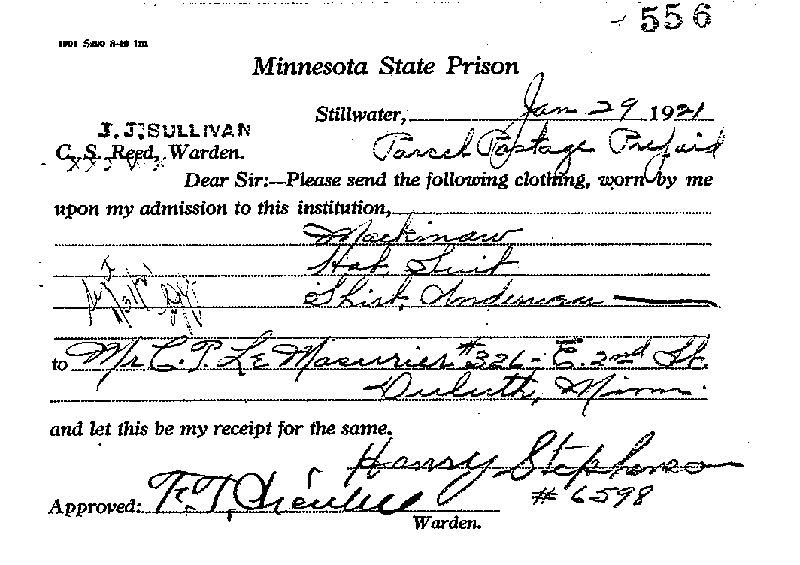 556
Minnesota State Prison
Stillwater, Jan 29 1921
J. J. SULLIVAN
C. S. Reed, Warden.
Parcel Postage Prepaid
Dear Sir:—Please send the following clothing, worn by me
upon my admission to this institution,
Mackinaw
Hat, Suit
Shirt, Underwear
to Mr C. P. Le Masurier #326 - E. 2nd St.
Duluth, Minn.
and let this be my receipt for the same.
Harry Stephens
# 6598
Approved: F. T.
Warden.